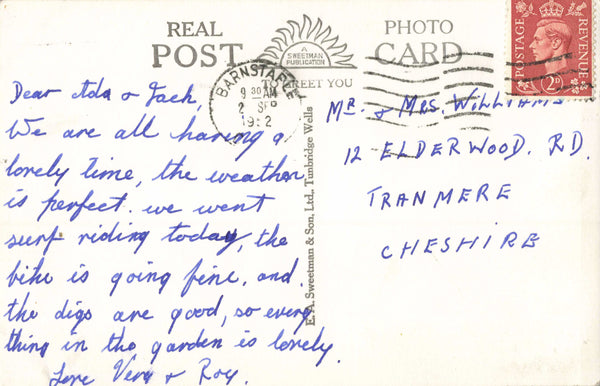 REAL PHOTO
POST CARD
A
SWEETMAN
PUBLICATION
TO GREET YOU
BARNSTAPLE
9 30 AM
2 SEP
1952
POSTAGE
REVENUE
2D
E. A. Sweetman & Son, Ltd., Tunbridge Wells
Dear Ada & Jack,
We are all having a
lovely time, the weather
is perfect. we went
surf riding today, the
bike is going fine. and
the digs are good, so every
thing in the garden is lovely.
Love Vera & Roy.
MR. & MRS. WILLIAMS
12 ELDERWOOD. RD.
TRANMERE
CHESHIRE